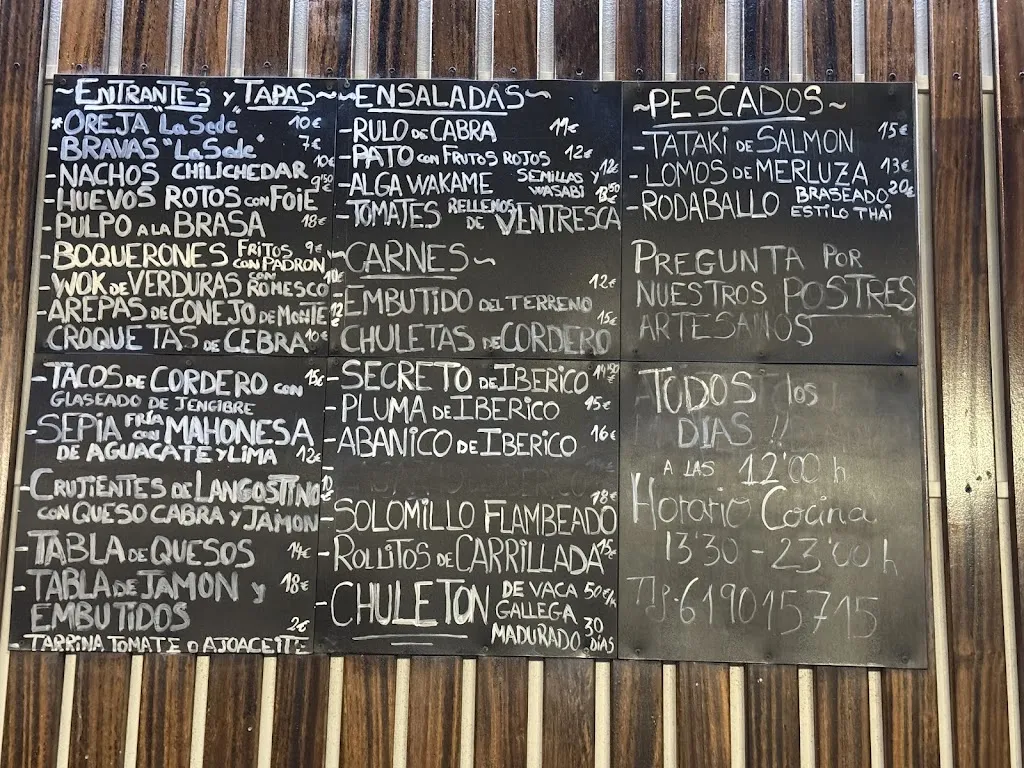 ~ENTRANTES y TAPAS~
*OREJA La Sede 10€
-BRAVAS "La Sede" 7€
-NACHOS CHILICHEDAR 10€
-HUEVOS ROTOS CON FOIE 9'50
-PULPO A LA BRASA 18€
-BOQUERONES FRITOS CON PADRON 9€
-WOK DE VERDURAS CON ROMESCO 10€
-AREPAS DE CONEJO DE MONTE 12€
CROQUETAS DE CEBRA 10€
-TACOS DE CORDERO CON 15€
GLASEADO DE JENGIBRE
-SEPIA FRÍA CON MAHONESA
DE AGUACATE Y LIMA 12€
-CRUJIENTES DE LANGOSTINO
CON QUESO CABRA Y JAMON
-TABLA DE QUESOS 14€
-TABLA DE JAMON Y 18€
EMBUTIDOS
-TARRINA TOMATE O AJOACEITE 2€
~ENSALADAS~
-RULO DE CABRA 11€
-PATO CON FRUTOS ROJOS 12€
-ALGA WAKAME SEMILLAS Y WASABI 12€
-TOMATES RELLENOS DE VENTRESCA
~CARNES~
EMBUTIDO DEL TERRENO 12€
CHULETAS DE CORDERO 15€
-SECRETO DE IBERICO 14'50
-PLUMA DE IBERICO 15€
-ABANICO DE IBERICO 16€
-SOLOMILLO FLAMBEADO 18€
-ROLLITOS DE CARRILLADA 15€
-CHULETON DE VACA 50€/K
GALLEGA
MADURADO 30 DIAS
~PESCADOS~
-TATAKI DE SALMON 15€
-LOMOS DE MERLUZA 13€
-RODABALLO BRASEADO 20€
ESTILO THAI
PREGUNTA POR
NUESTROS POSTRES
ARTESANOS
TODOS los
DIAS !!
A LAS 12'00 h
Horario Cocina
13'30 - 23'00 h
Tlf. 619015715